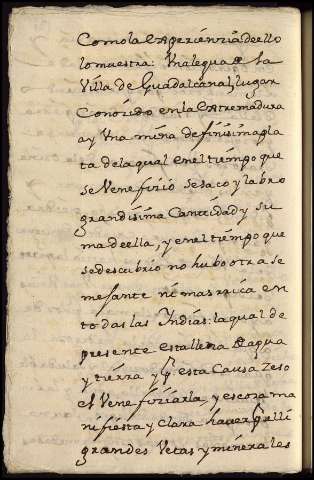 Como la experiençia de ello
lo muestra: Una legua de la
Villa de Guadalcanal, lugar
Conoçido en la Extremadura
ay Una mina de finisima pla
ta de la qual en el tiempo que
se Venefiçio se saco y labro
grandisima Cantidad y su
ma de ella, y en el tiempo que
se descubrio no hubo otra se
mejante ni mas rrica en
todas las Indias: la qual de
presente esta llena de agua
y tierra y por esta Causa zeso
el Venefiçiarla, y es cosa ma
nifiesta y Clara haver por alli
grandes Vetas y minerales